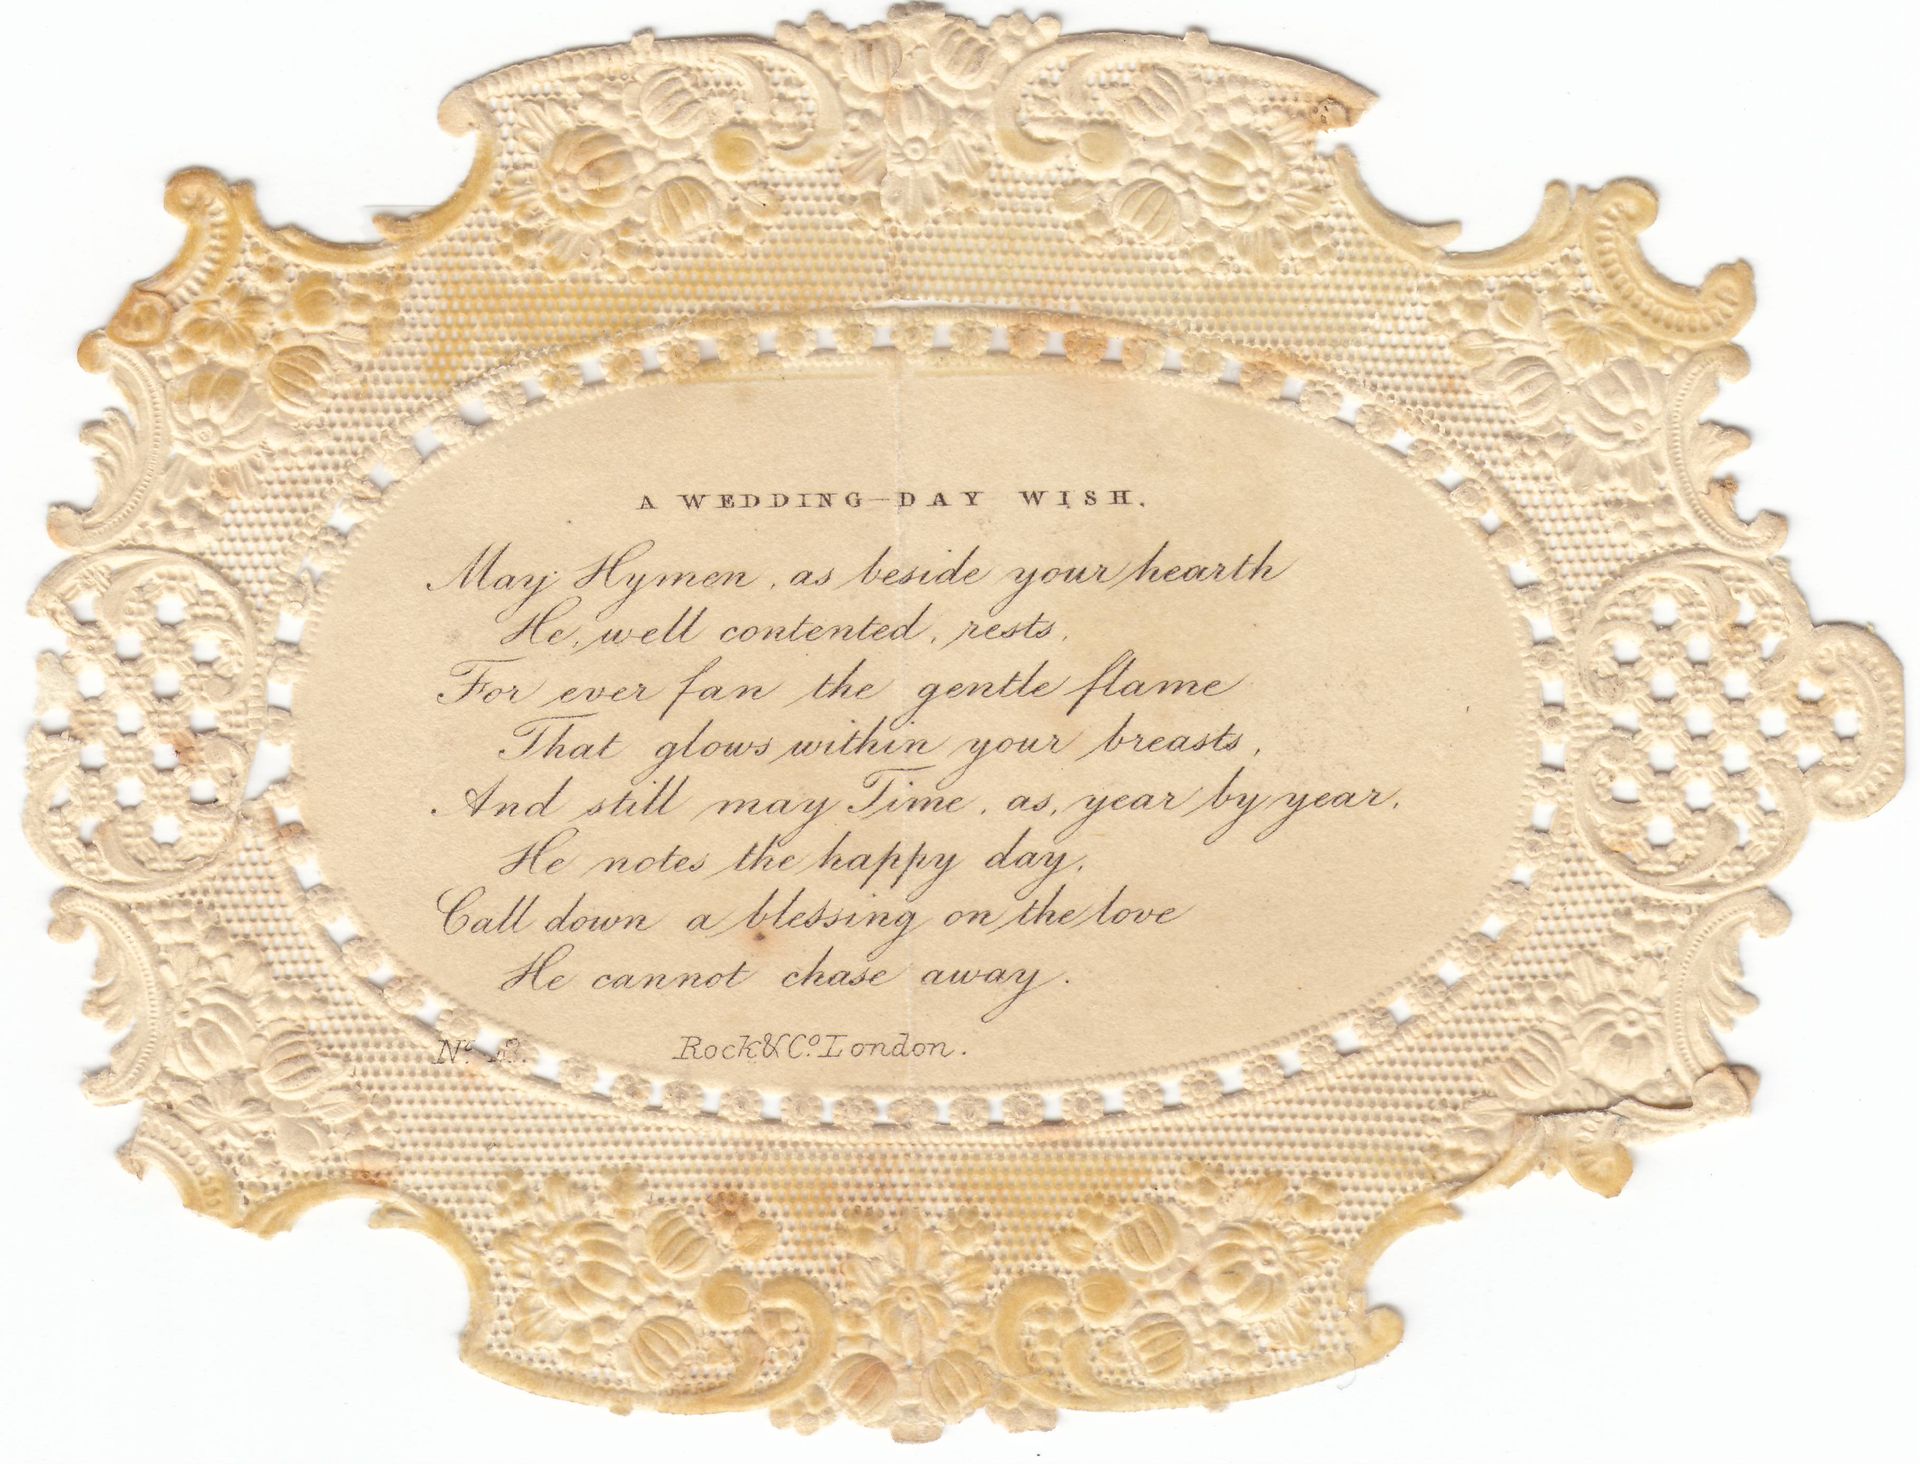 A WEDDING-DAY WISH.
May Hymen, as beside your hearth
He, well contented, rests,
For ever fan the gentle flame
That glows within your breasts,
And still may Time, as, year by year,
He notes the happy day,
Call down a blessing on the love
He cannot chase away.
No
Rock & Co. London.